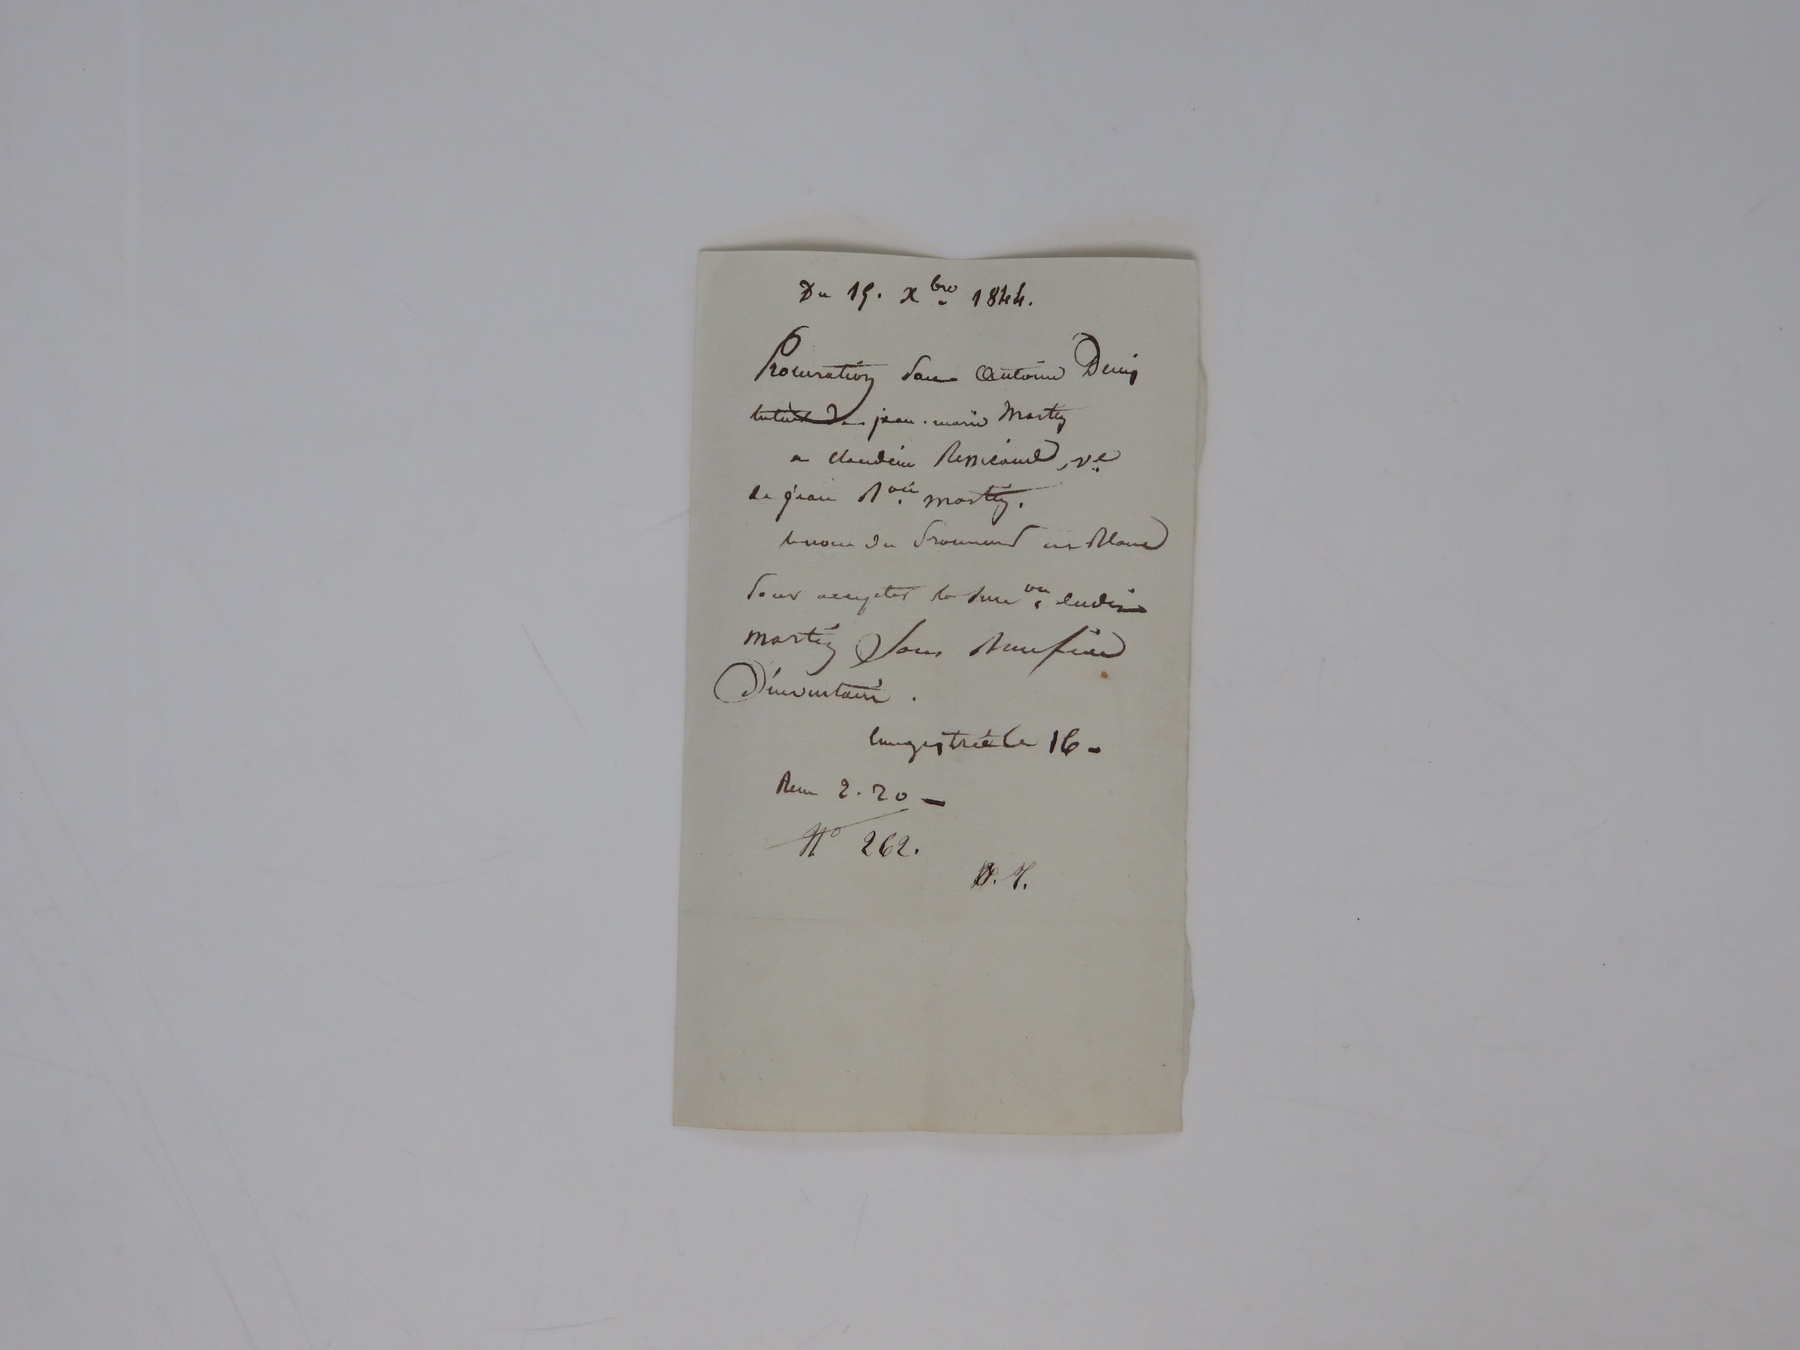 Du 15. Xbre 1844.
Procuration par Antoine Denis
tutèur de jean-marie Martin
a claudine, ve
de jean Bte martin.
le nom du procureur en Blanc
pour accepter la suc.on dudit
martin sous Benefice
D'inventaire.
Enregistré le 16 -
Reçu 2.20 -
No 262.